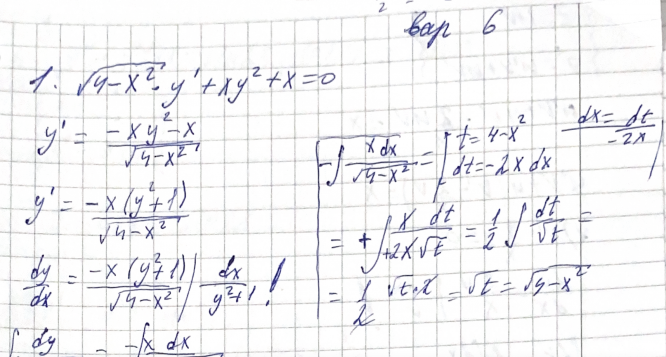 вар 6
1. √(4-x²) · y' + xy² + x = 0
y' = (-xy² - x)/√(4-x²)
y' = (-x(y²+1))/√(4-x²)
dy/dx = (-x(y²+1))/√(4-x²) | dx/(y²+1) !
∫ dy = -∫ x dx
-∫ x dx/√(4-x²) = [ t = 4-x² dx = dt/(-2x)
dt = -2x dx
= +∫ x dt/(+2x√t) = 1/2 ∫ dt/√t =
= 1/2 √t · 2 = √t = √(4-x²)